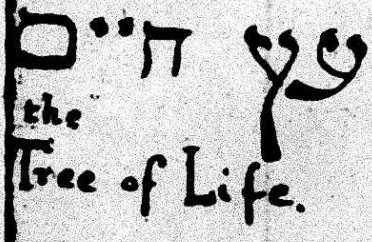 עץ חיים
the
Tree of Life.